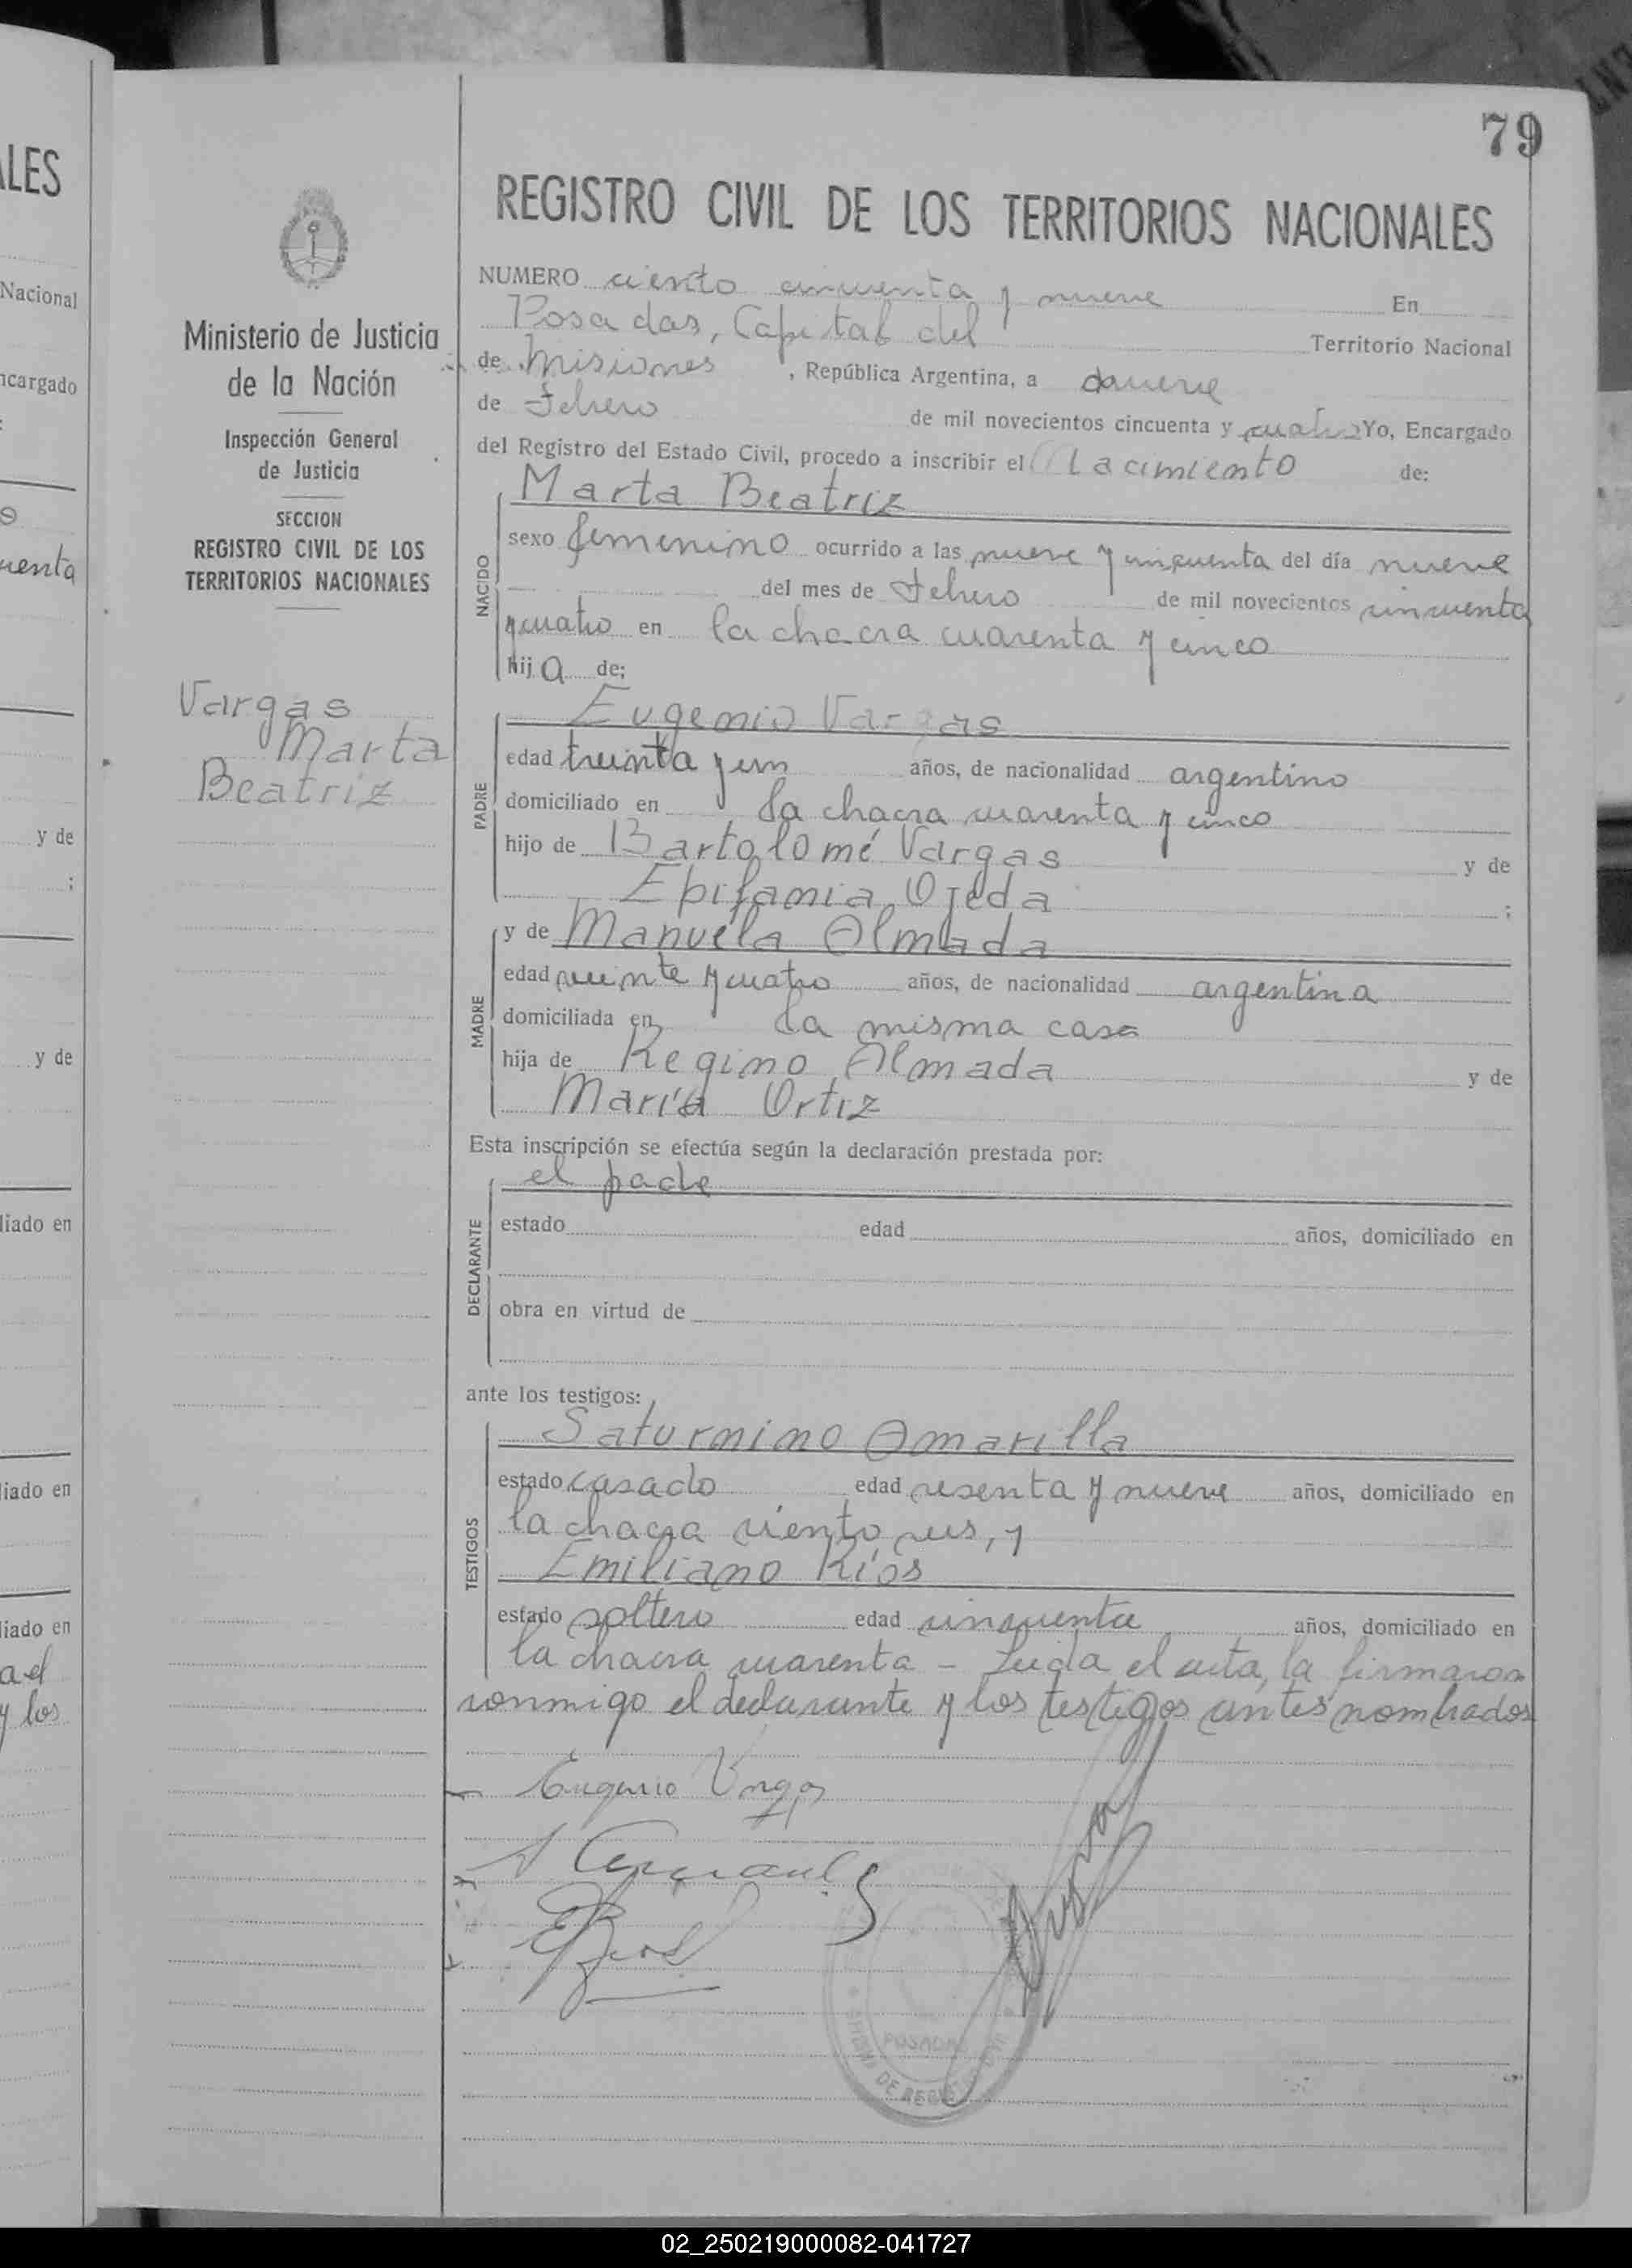 79
ALES
Nacional
ncargado
uenta
y de
;
y de
liado en
liado en
liado en
a el
y los
Ministerio de Justicia
de la Nación
Inspección General
de Justicia
SECCION
REGISTRO CIVIL DE LOS
TERRITORIOS NACIONALES
Vargas
Marta
Beatriz
REGISTRO CIVIL DE LOS TERRITORIOS NACIONALES
NUMERO ciento cincuenta y nueve En
Posadas, Capital del Territorio Nacional
de Misiones, República Argentina, a
de Febrero de mil novecientos cincuenta y cuatro Yo, Encargado
del Registro del Estado Civil, procedo a inscribir el Nacimiento de:
Marta Beatriz
NACIDO
sexo femenino ocurrido a las nueve y cincuenta del día nueve
del mes de Febrero de mil novecientos cincuenta
y cuatro en la chacra cuarenta y cinco
hija de;
Eugenio Vargas
PADRE
edad treinta y un años, de nacionalidad argentino
domiciliado en la chacra cuarenta y cinco
hijo de Bartolomé Vargas y de
Epifania Ojeda ;
y de Manuela Almada
MADRE
edad veinte y cuatro años, de nacionalidad argentina
domiciliada en la misma casa
hija de Regino Almada y de
María Ortiz
Esta inscripción se efectúa según la declaración prestada por:
el padre
DECLARANTE
estado edad años, domiciliado en
obra en virtud de
ante los testigos:
Saturnino Amarilla
TESTIGOS
estado casado edad sesenta y nueve años, domiciliado en
la chacra ciento seis, y
Emiliano Ríos
estado soltero edad cincuenta años, domiciliado en
la chacra cuarenta - Leida el acta, la firmaron
conmigo el declarante y los testigos antes nombrados
Eugenio Vargas
POSADAS
DE REGISTRO CIVIL
02_250219000082-041727